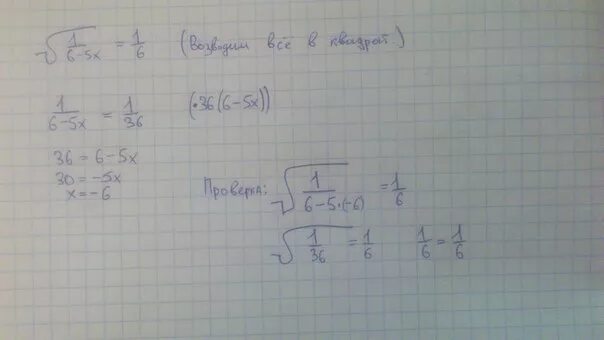 √(1/(6-5x)) = 1/6 (возводим всё в квадрат)
1/(6-5x) = 1/36 (·36(6-5x))
36 = 6-5x
30 = -5x
x = -6
Проверка: √(1/(6-5·(-6))) = 1/6
√(1/36) = 1/6 1/6 = 1/6